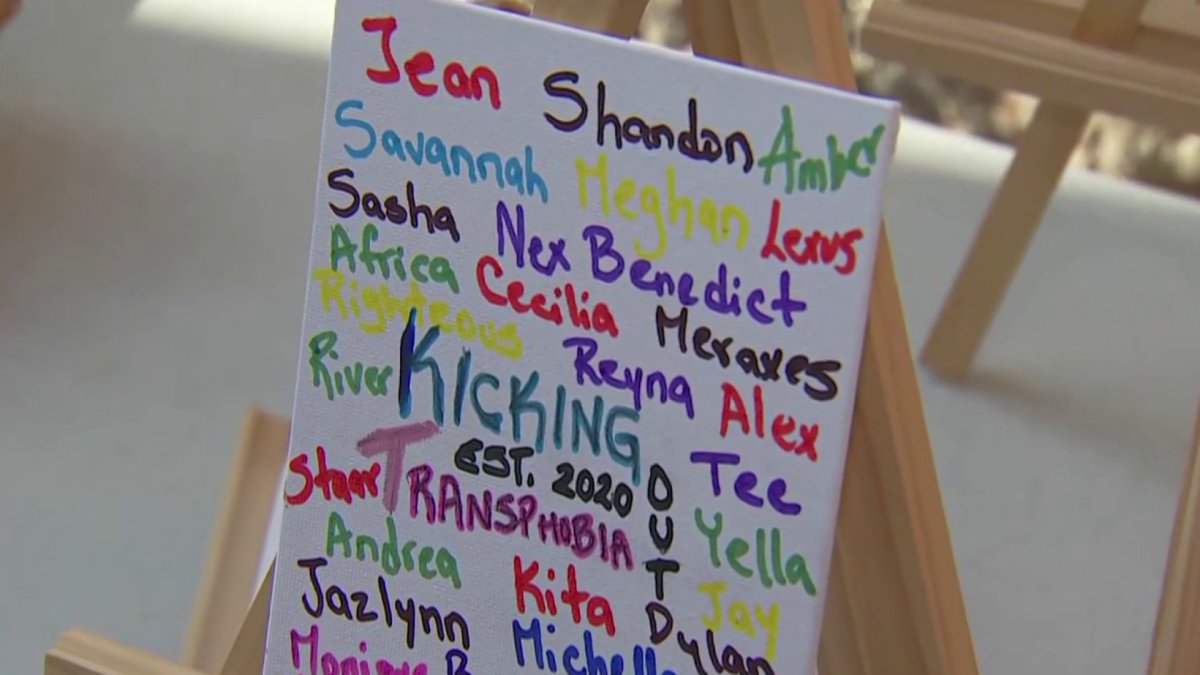 Jean Shandon Amber
Savannah Meghan Lexus
Sasha Nex Benedict
Africa Cecilia Meraxes
Righteous Reyna Alex
River KICKING
EST. 2020 OUT Tee
Starr TRANSPHOBIA Yella
Andrea Kita Jay
Jazlynn Dylan
Monique B Michelle